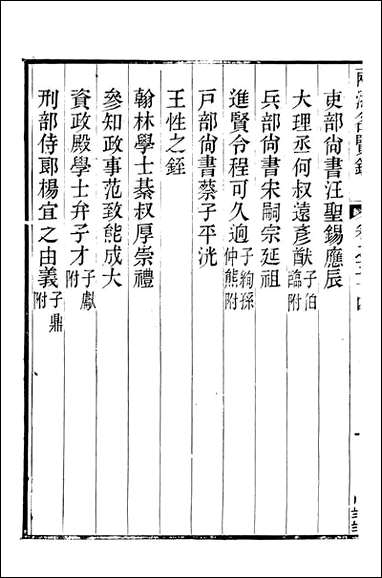 吏部尙書汪聖錫應辰
大理丞何叔遠彥猷子伯臨附
兵部尙書宋嗣宗延祖
進賢令程可久逈子絢孫仲熊附
戸部尙書蔡子平洸
王性之銍
翰林學士綦叔厚崇禮
參知政事范致能成大
資政殿學士弁子才子獻附
刑部侍郞楊宜之由義子鼎附